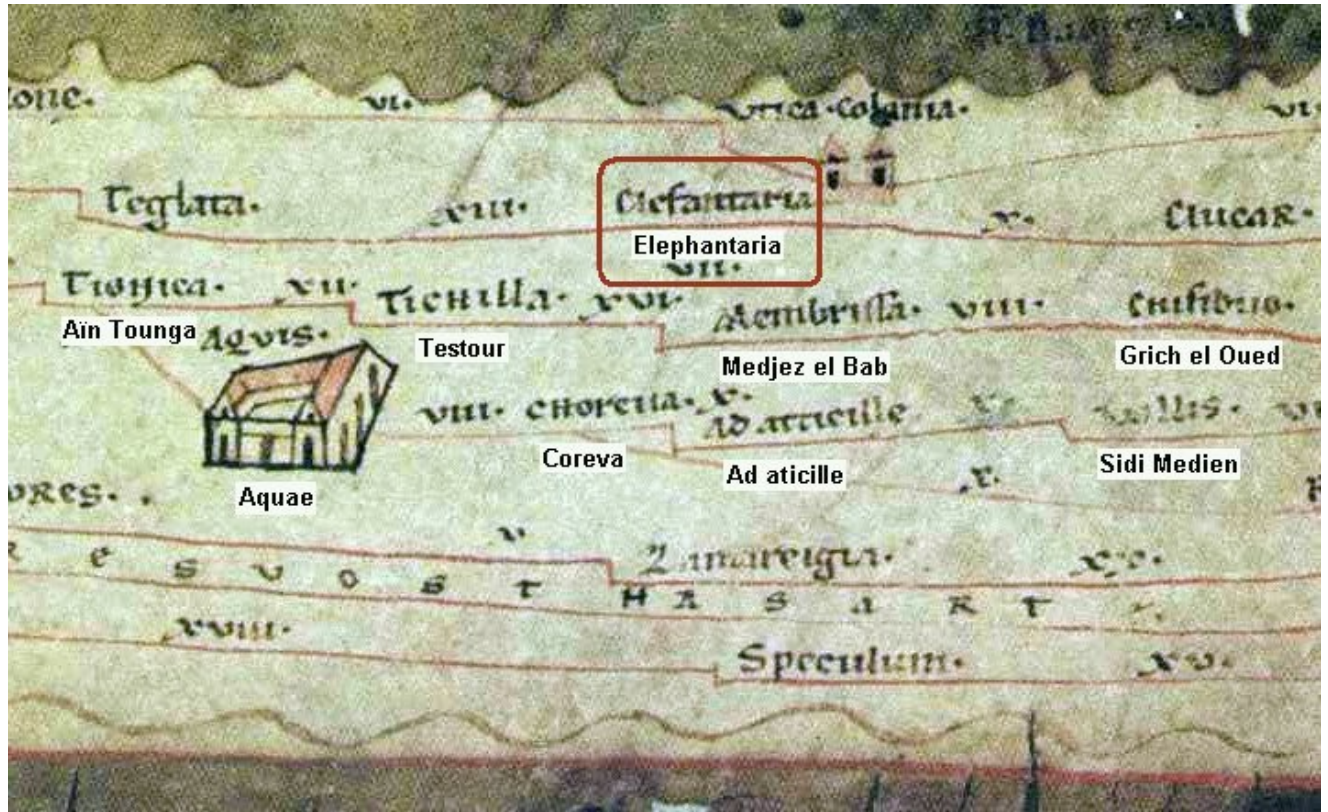 one. VI. Vtica·Colonia· VI
Teglata· XIII· Clefantaria X· Clucar·
Elephantaria
VII·
Tionica· XII· Tichilla· XVI· Membrissa· VIII· Chisibuo·
Aïn Tounga Aqvis· Testour Medjez el Bab Grich el Oued
VIII· Chorella· X· Ad atticille X· llis· VI
Coreva Ad aticille Sidi Medien
Aquae
ores· X·
V Zamareigia· XX·
R e s v o s t H a s a R t
XVIII·
Speculum· XV·